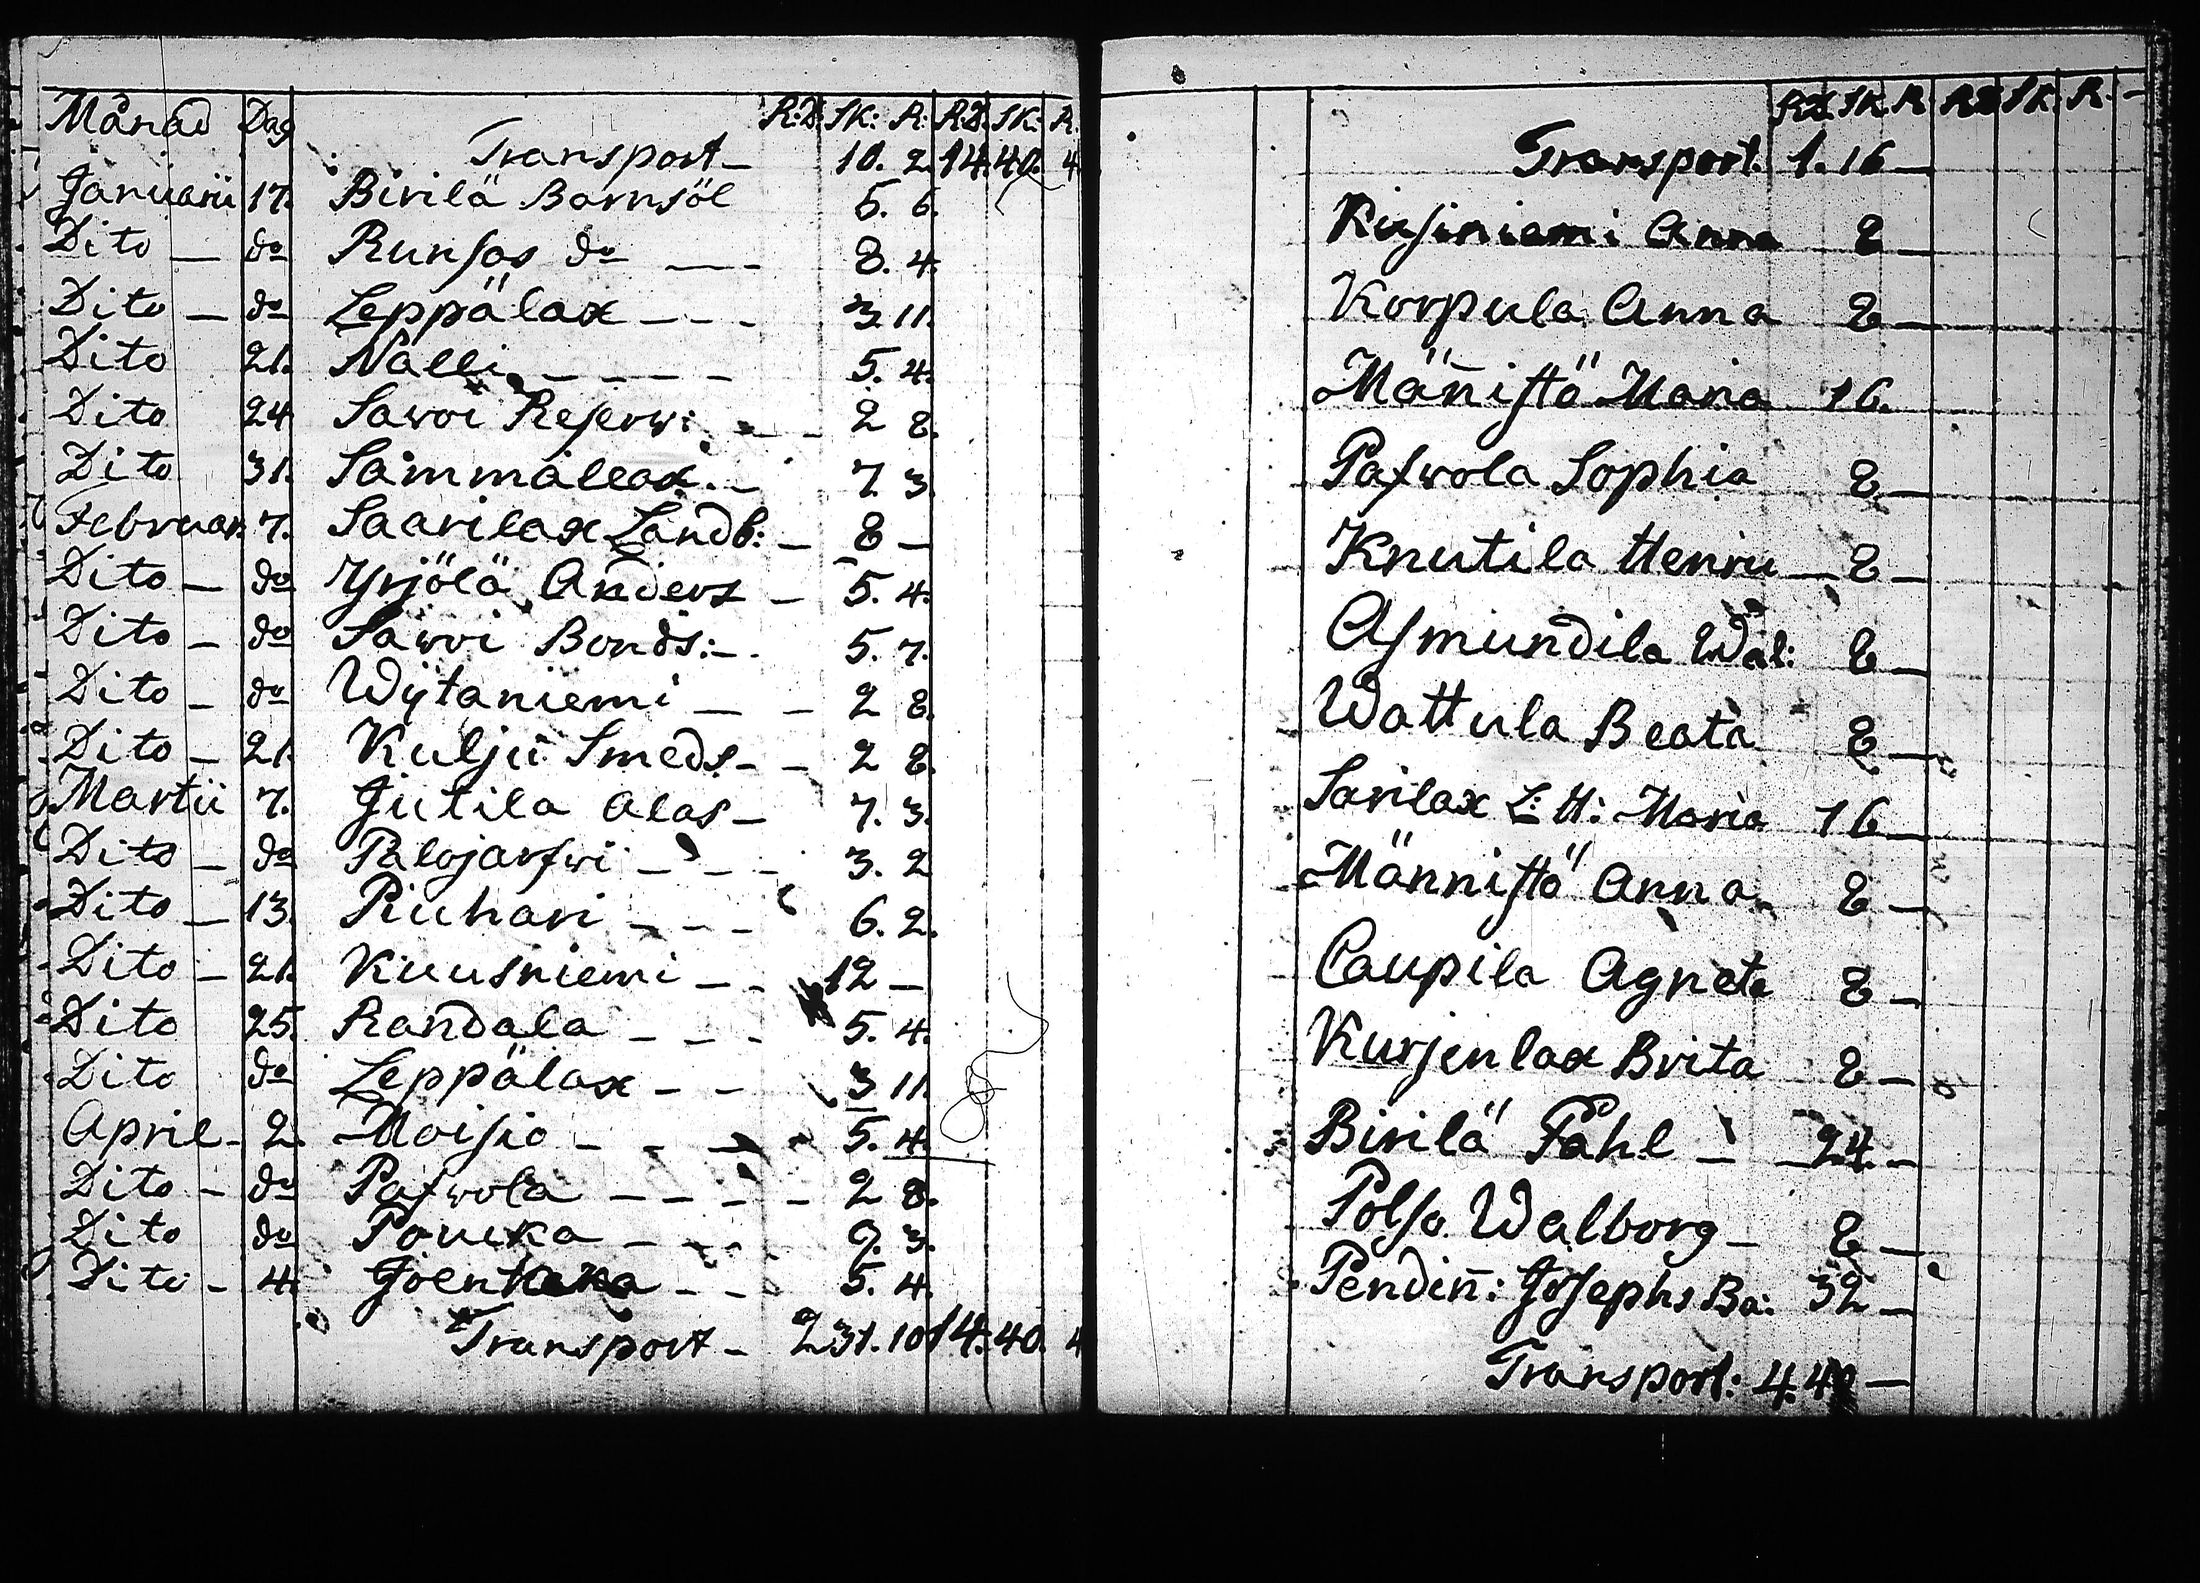 Månad Dag R:D: SK: R: R:D: SK: R.
Transport - 10. 2. 14. 40. 4
Januarii 17. Birilä Barnsöl 5. 6.
Dito - do Runsas do - - 8. 4.
Dito - do Leppälax - - - 3. 11.
Dito 21. Nalli - - - - 5. 4.
Dito 24 Sawoi Reserw: - - 2 8.
Dito 31. Sammallax - 7. 3
Februar. 7. Saarilax Landb: - 8 -
Dito - do Yrjölä Anders - 5. 4.
Dito - do Sawoi Bonds: - 5. 7.
Dito - do Wytaniemi - - 2 8.
Dito - 21. Kulju Smeds - - 2 8.
Martii 7. Jutila Alas - 7. 3.
Dito - do Palojarfwi - - - 3. 2
Dito - 13. Piuhari - - - 6. 2.
Dito - 21. Kuusniemi - - 12 -
Dito 25. Randala - - - 5. 4.
Dito do Leppälax - - 3 11.
April - 2. Moisio - - - 5. 4.
Dito - do Pafwola - - - - 2 8.
Dito do - - - 9. 3.
Dito - 4. - - 5. 4.
Transport - 2 31. 10 14. 40. 4
RD. SK. R RD SK. R. -
Transport. 1. 16 -
Kusiniemi Anna 8 -
Korpula Anna 8 -
Mänistö Maria 16.
Pafwola Sophia 8 -
Knutila Henru - 8 -
Asmundila Wal: 8 -
Wattula Beata 8 -
Sarilax L: H: Maria 16 -
Männistö Anna 8 -
Caupila Agneta 8 -
Kurjenlax Brita 8 -
Birilä Pahl - 24. -
Polso Walborg - 8 -
Pendin̄: Josephs Ba: 32 -
Transport: 4. 40 -